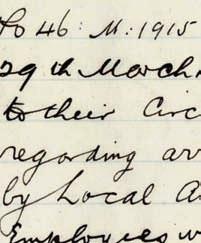 to 46: M: 1915
29th March
to their Circ
regarding ar
by Local A
Employees w